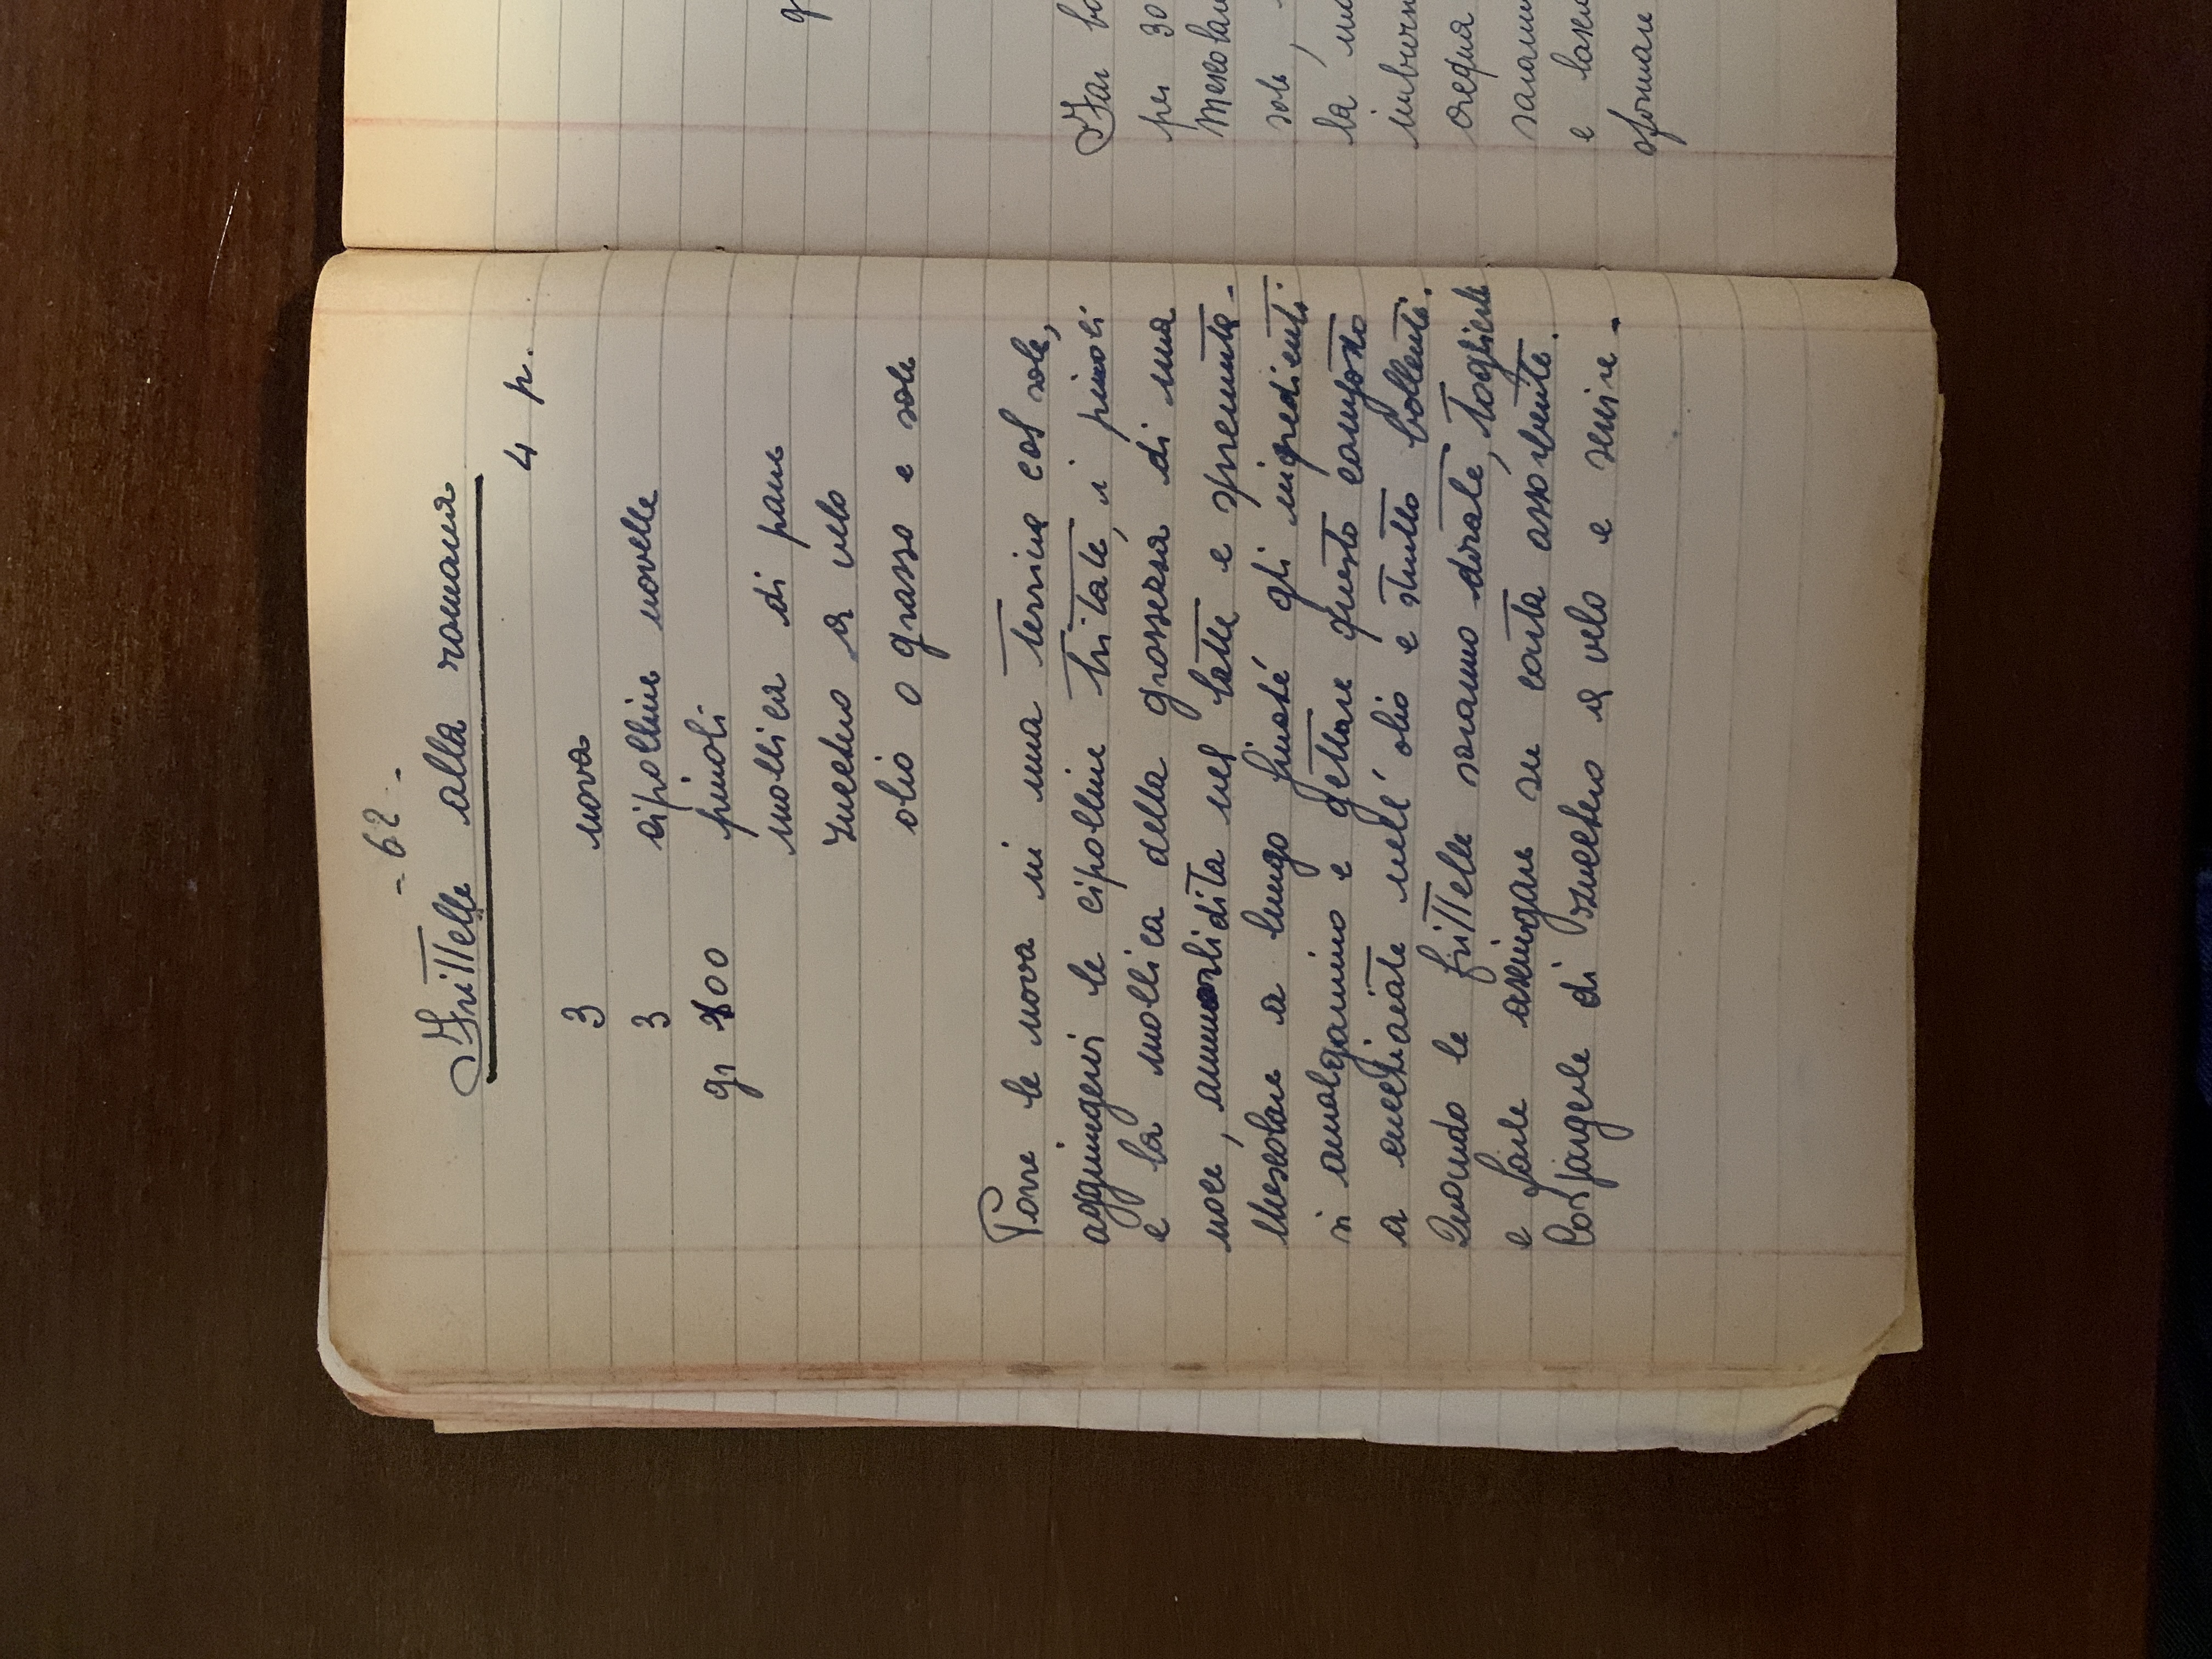 - 62 -
Frittelle alla romana
4 p.
3 uova
3 cipolline novelle
gr 100 pinoli
mollica di pane
zucchero a velo
olio o grasso e sale
Porre le uova in una terrina col sale,
aggiungervi le cipolline tritate, i pinoli
e la mollica della grossezza di una
noce, ammorbidita nel latte e spremuta.
Mescolare a lungo finché gli ingredienti
si amalgamino e gettare questo composto
a cucchiaiate nell' olio e strutto bollenti.
Quando le frittelle saranno dorate, toglierle
e farle asciugare su carta assorbente.
Cospargerle di zucchero a velo e servire.
g
Far
per 30
Mescolare
sale,
la
acqua
saranno
e
sformare